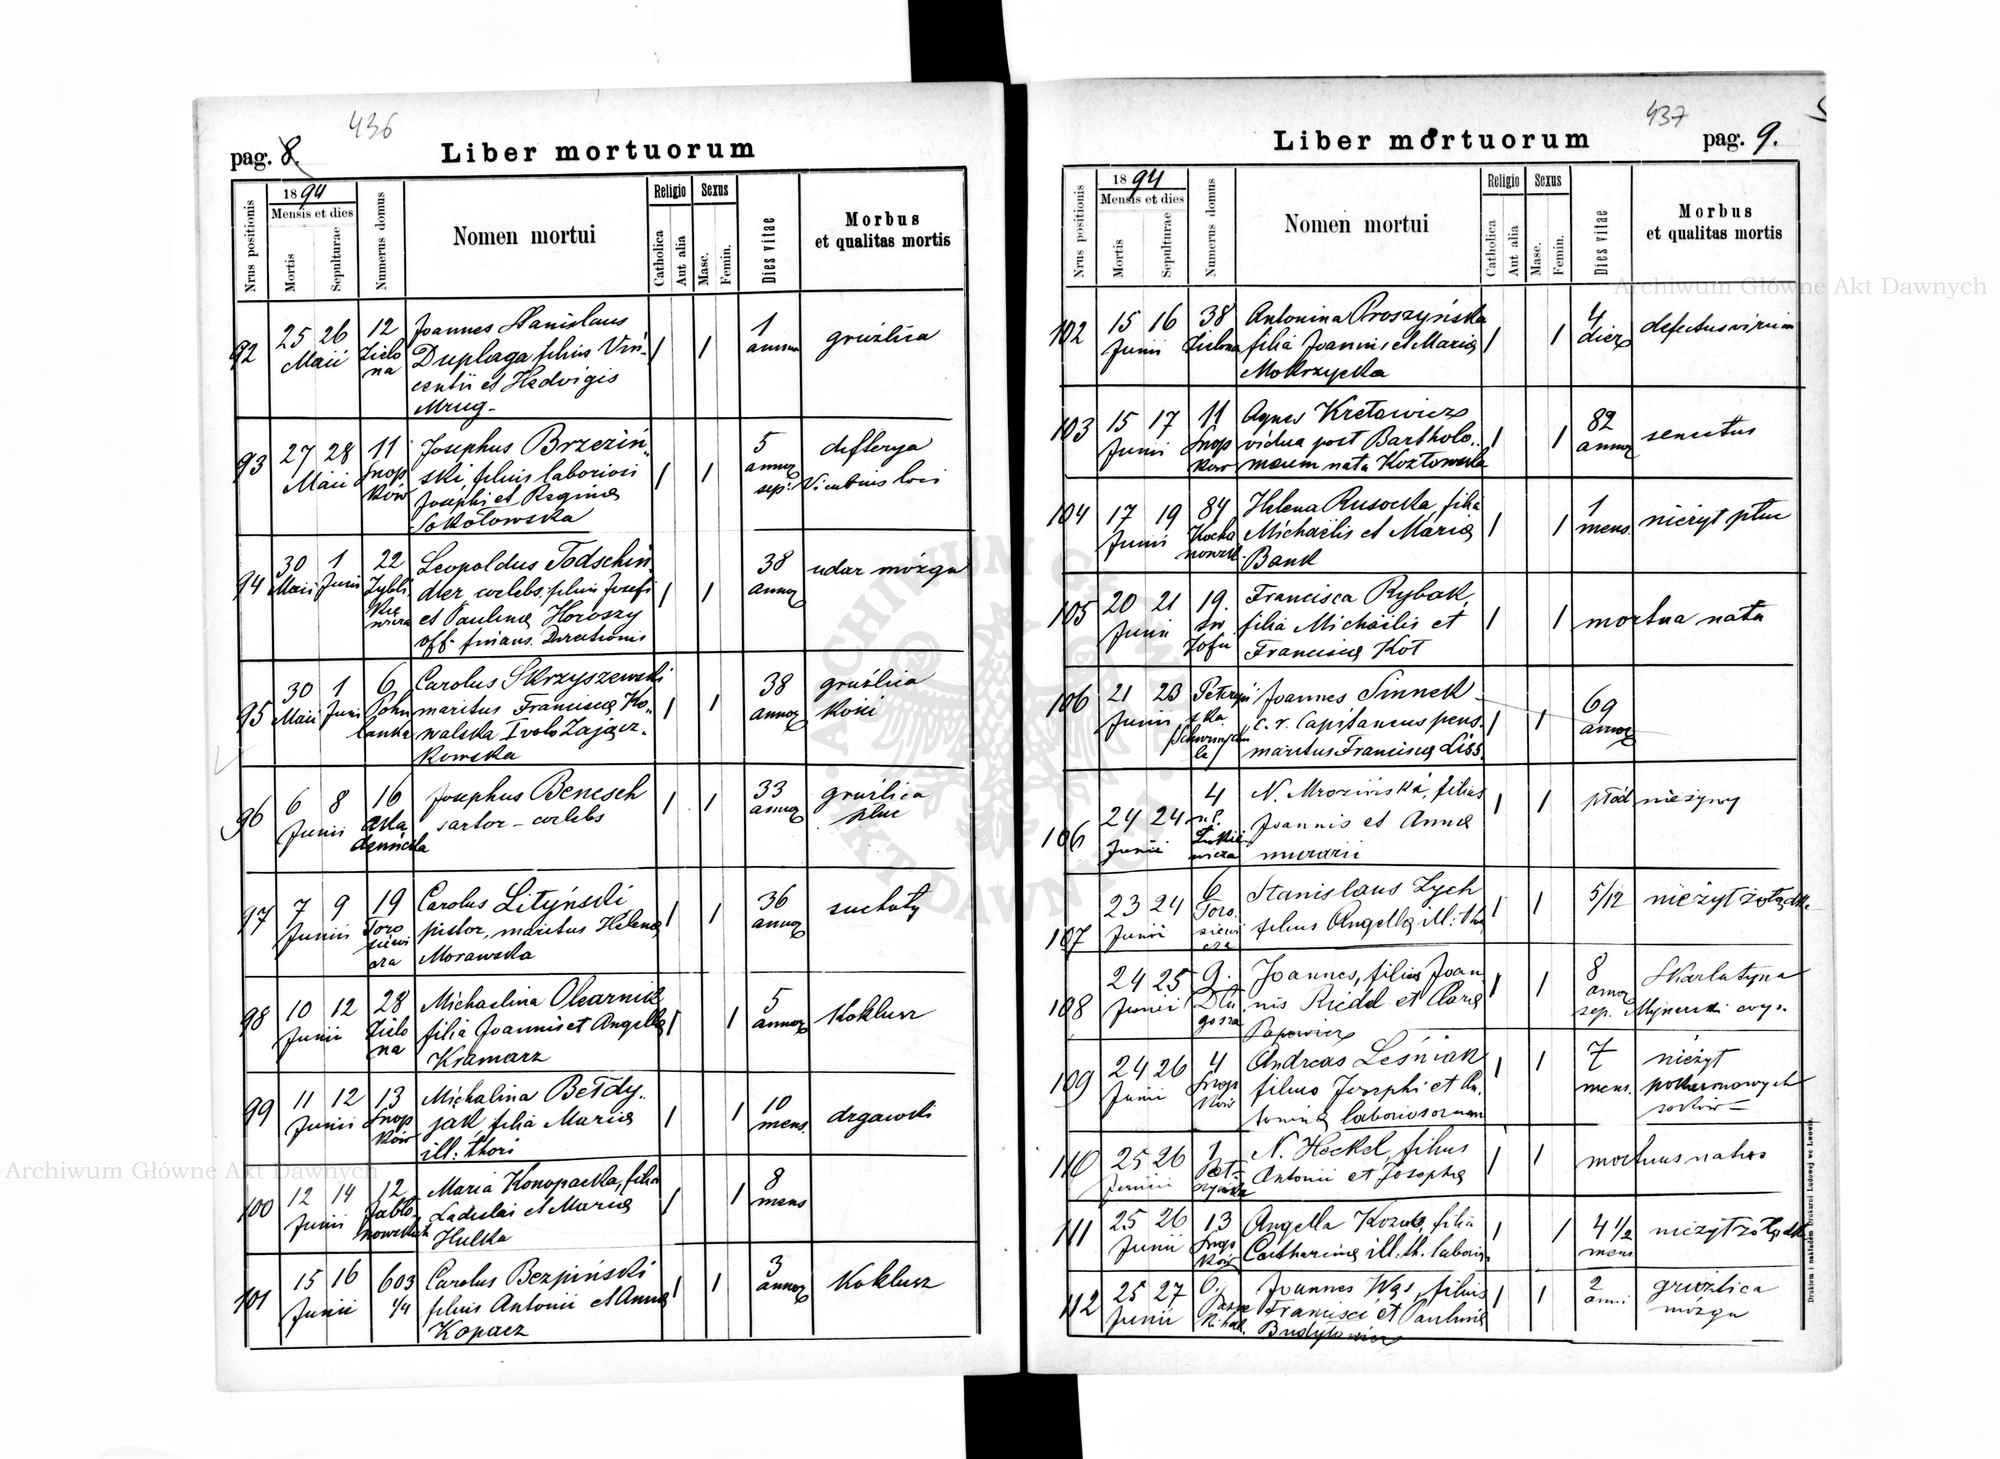 436
pag. 8.
Liber mortuorum
Nrus positionis
1894
Mensis et dies
Mortis
Sepulturae
Numerus domus
Nomen mortui
Religio
Catholica
Aut alia
Sexus
Masc.
Femin.
Dies vitae
Morbus
et qualitas mortis
92 25 26 Maii 12 Zielona
Joannes Stanislaus
Duplaga filius Vin-
centii et Hedvigis
Mrug-
1
gruźlica
93 27 28 Maii 11 Snopków
Josephus Brzeziń-
ski, filius laboriosi
Josephi et Reginae
Sokołowska
5
annor
sep:
difterya
94 30 Maii 1 Junii 22
Leopoldus Todschin-
der coelebs: filius Josefi
et Paulinae Horoszy
off. finans. Directionis
38
annor
udar mózgu
95 30 Maii 1 Juni 6 Pohulanka
Carolus Skrzyszewski
maritus Franciscae Ko-
walska I voto Zającz-
kowska
38
annor
gruźlica
kości
96 6 8 Junii 16 Akademicka
Josephus Benesch
sartor - coelebs
33
annor
gruźlica
płuc
97 7 9 Junii 19 Torosiewicza
Carolus Lityński
pistor, maritus Helenae
Morawska
36
annor
suchoty
98 10 12 Junii 28 Zielona
Michaelina Olearnik
filia Joannis et Angellae
Kramarz
5
annor
Koklusz
99 11 12 Junii 13 Snopków
Michalina Bełdy-
jak, filia Mariae
ill: thori
10
mens.
drgawki
100 12 14 Junii 12
Maria Konopacka, filia
Ladislai et Mariae
Hulka
8
mens
101 15 16 Junii 603 1/4
Carolus Bezpiński
filius Antonii et Annae
Kopacz
3
annor
Koklusz
437
Liber mortuorum
pag. 9.
Nrus positionis
1894
Mensis et dies
Mortis
Sepulturae
Numerus domus
Nomen mortui
Religio
Catholica
Aut alia
Sexus
Masc.
Femin.
Dies vitae
Morbus
et qualitas mortis
102 15 16 Junii 38 Zielona
Antonina Proszyńska
filia Joannis et Mariae
Mokrzycka
4
dier
defectus virium
103 15 17 Junii 11 Snopków
Agnes Kretowicz
vidua post Bartholo-
maeum nata Kozłowska
82
annor
senectus
104 17 19 Junii 84
Helena Rusocka, filia
Michaelis et Mariae
Bank
1
mens.
nieżyt płuc
105 20 21 Junii 19. św Zofii
Francisca Rybak,
filia Michaelis et
Franciscae Kot
mortua nata
106 21 23 Junii
Joannes Sinnek
c. r. Capitaneus pens.
maritus Franciscae Liss.
69
annor
106 24 24 Junii 4
N. Mroziński, filius
Joannis et Annae
murarii
płód nieżywy
107 23 24 Junii 6 Torosiewicza
Stanislaus Zych
filius Angellae ill: th.
5/12
nieżyt żołądka
108 24 25 Junii 9. Długosza
Joannes, filius Joan
nis Riedl et Clarae
Papowicz
8
annor
sep.
Skarlatyna
109 24 26 Junii 4 Snopków
Andreas Leśniak
filius Josephi et An-
toninae laboriosorum
7
mens.
nieżyt
pokarmowych
110 25 26 Junii 1
N. Heckel, filius
Antonii et Josephae
mortuus natus
111 25 26 Junii 13 Snopków
Angella Kozub, filia
Catharinae ill. th. labor.
4 1/2
mens
nieżyt żołądka
112 25 27 Junii
Joannes Wąs, filius
Francisci et Paulinae
2
anni
gruźlica
mózgu
Drukiem i nakładem Drukarni Ludowej we Lwowie.
Archiwum Główne Akt Dawnych
Archiwum Główne Akt Dawnych